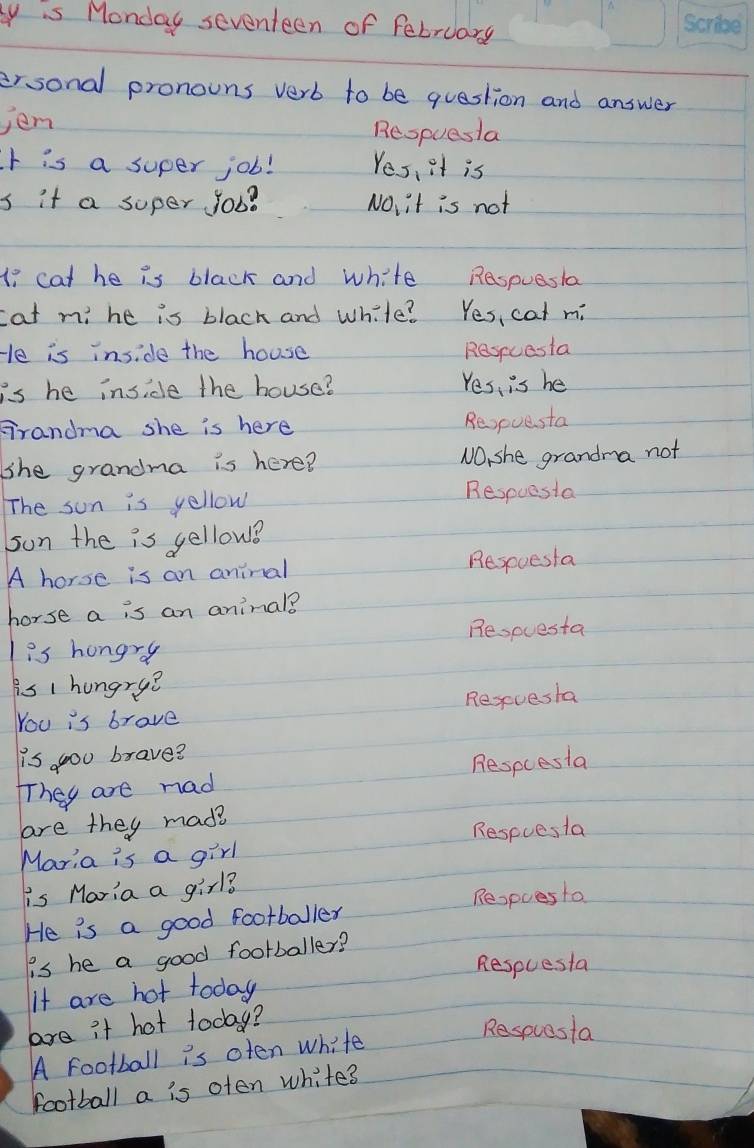 is Monday seventeen of February
Scribe
ersonal pronouns verb to be question and answer
jem Respuesta
It is a super job! Yes, it is
s it a super job? No, it is not
Mi cat he is black and white Respuesta
cat mi he is black and white? Yes, cat mi
He is inside the house Respuesta
is he inside the house? Yes, is he
Grandma she is here Respuesta
she grandma is here? NO, she grandma not
The sun is yellow Respuesta
sun the is yellow?
A horse is an animal Respuesta
horse a is an animal?
I is hungry Respuesta
is I hungry?
You is brave Respuesta
is you brave?
They are mad Respuesta
are they mad?
Maria is a girl Respuesta
is Maria a girl?
He is a good footballer Respuesta
is he a good footballer?
It are hot today Respuesta
are it hot today?
A Football is oten white Respuesta
football a is oten white?